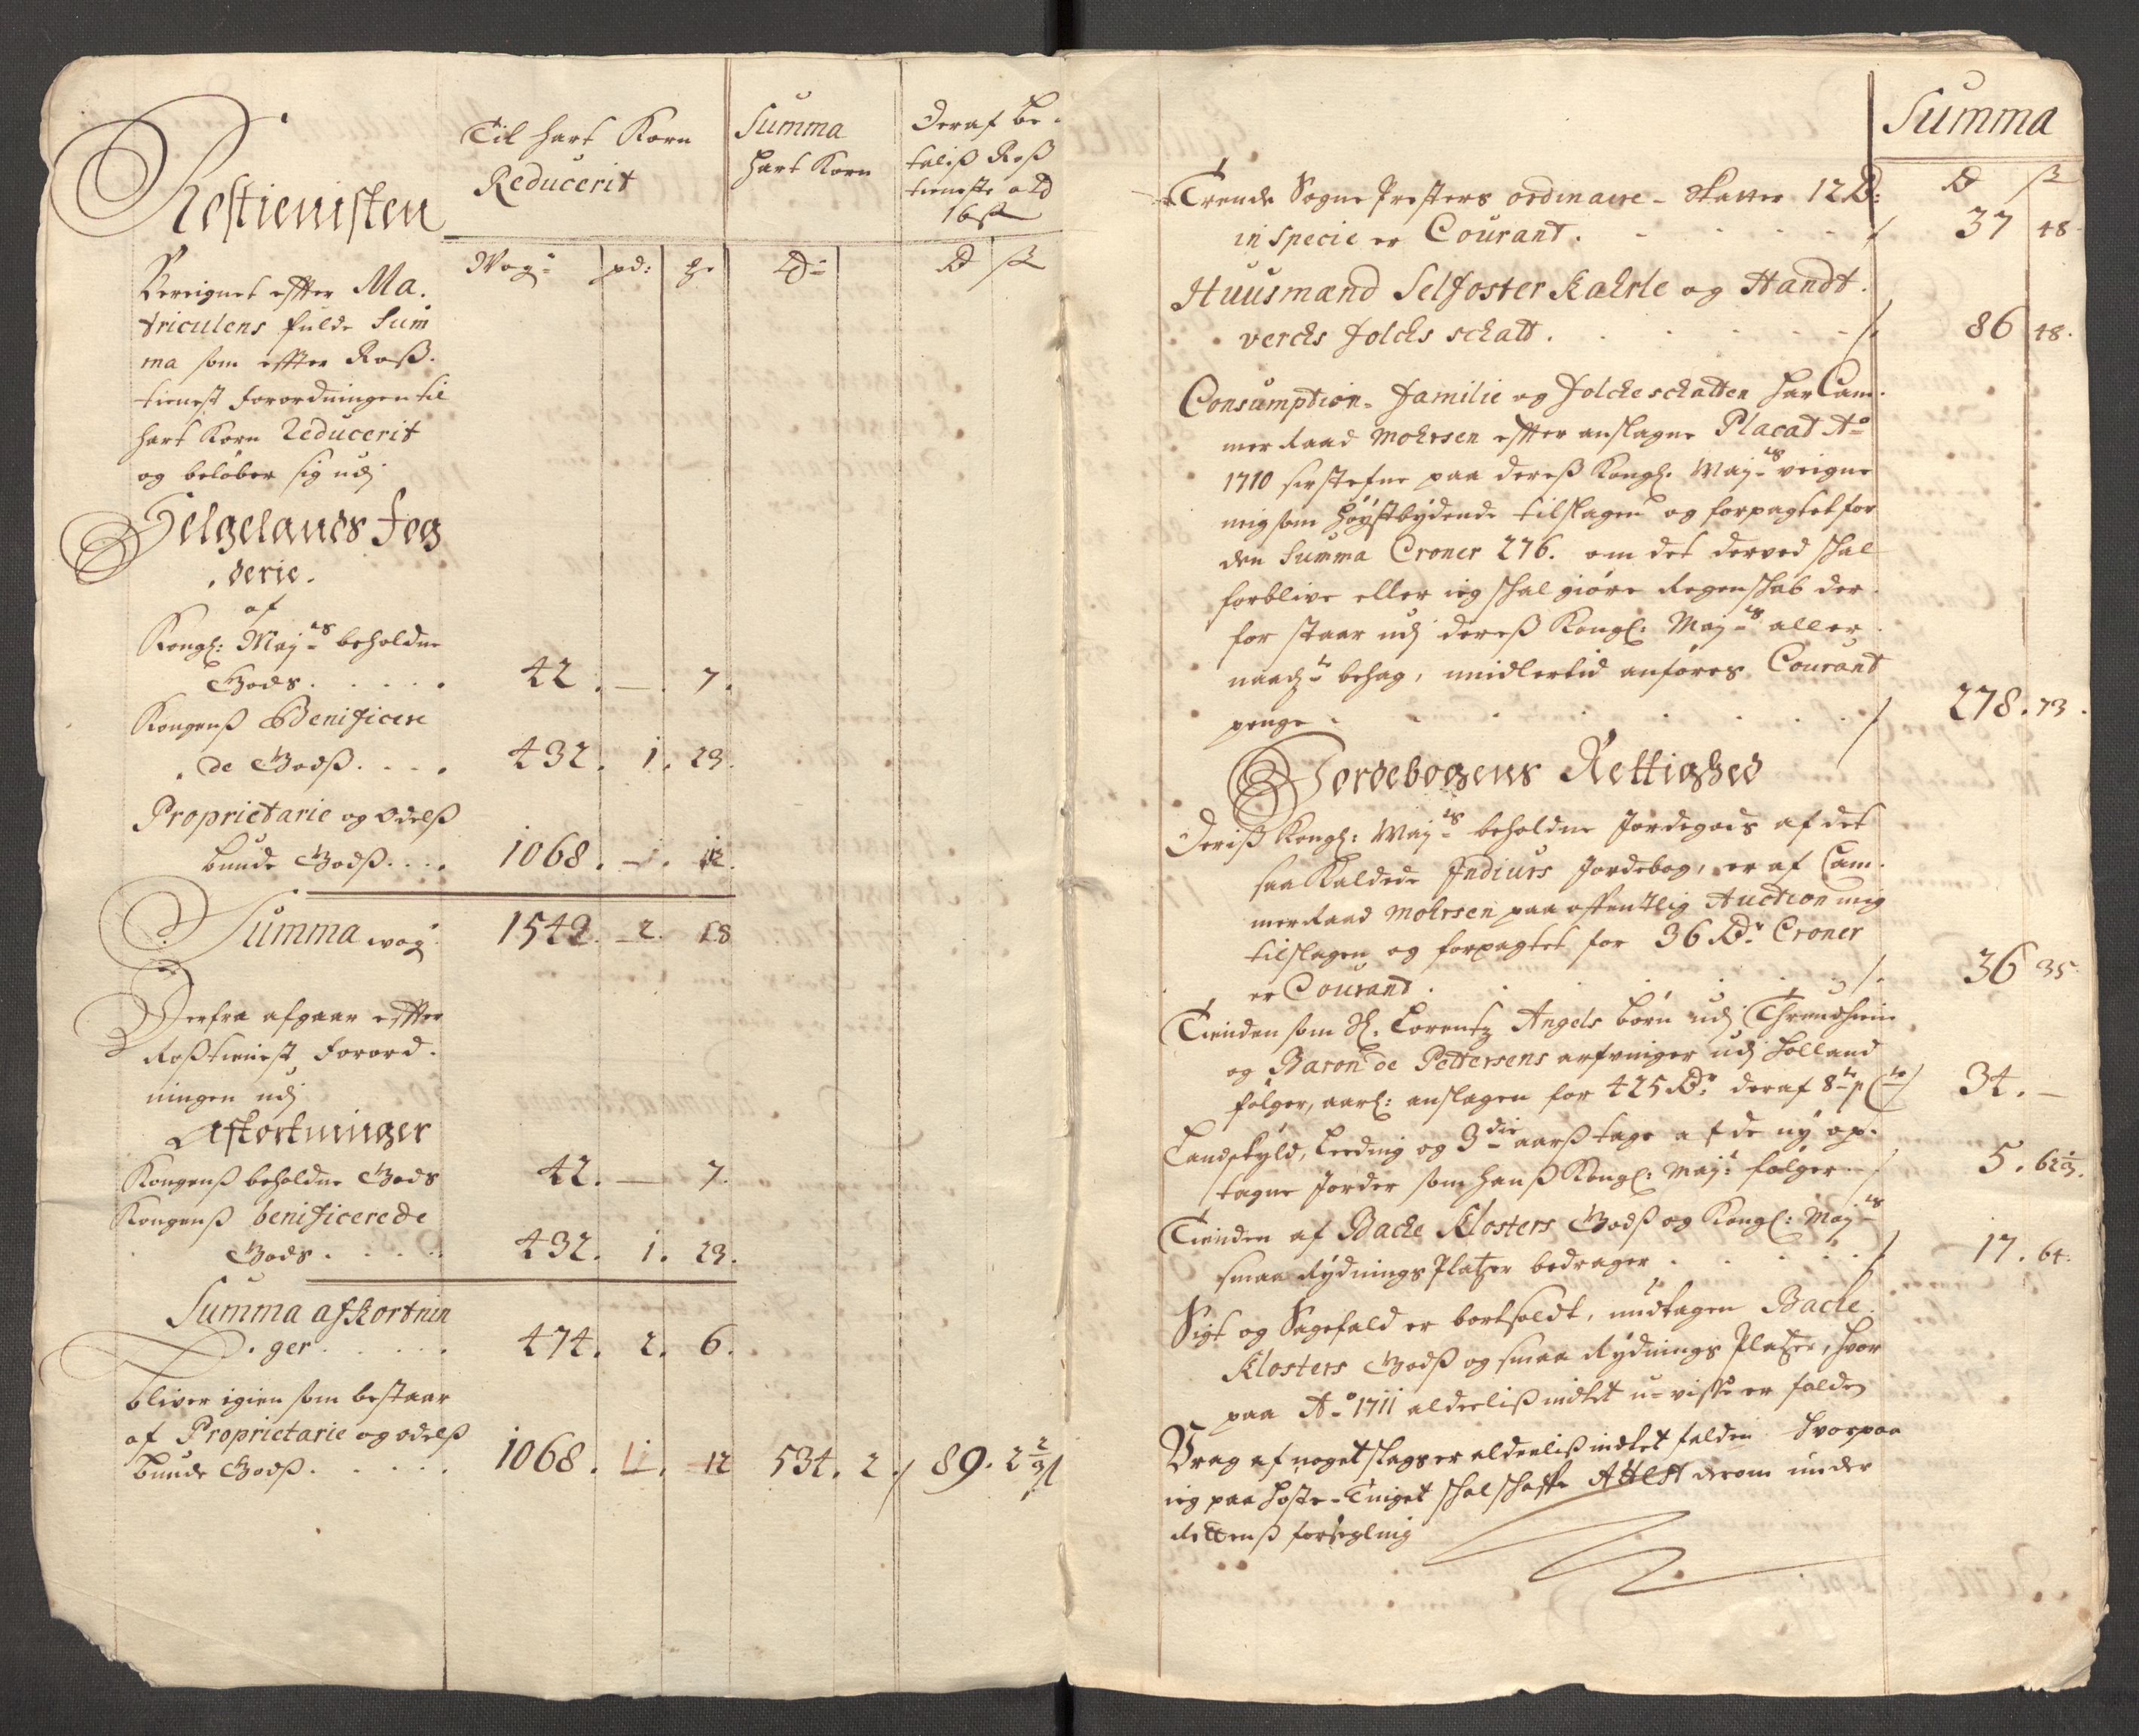 Rostienisten
Til hart Korn
Reducerit
Summa
hart Korn
Deraf be-
talis Ross
tieneste a td
16 ß
Wog: pd: ℔
Td:
Rd ß
Bereignet effter Ma-
triculens fulde Sum
ma som effter Ross-
tienest forordningen til
hart Korn Reducerit
og beløber sig udj
Helgelands Fog
derie.
af
Kongl: Mayts beholdne
Gods. . . . . 42. — 7.
Kongens Benificere
de Godß. . . . 432. 1. 23.
Proprietarie og Odelß
bunde Godß. . . . 1068. 1. 12.
Summa wog: 1542. 2. 18
Derfra afgaar effter
Roßtienest Forord-
ningen udj
Afkortninger
Kongenß beholdne Gods 42. — 7.
Kongenß benificerede
Gods. . . . . 432. 1. 23.
Summa afkortnin
ger. . . . . 474. 2. 6.
bliver igien som bestaar
af Proprietarie og odelß
bunde Godß. . . . . 1068. 1. 12 534. 2. 89. 2 2/3 ß
Summa
Rd ß
Trende Sogne Presters ordinaire Skatter 12 Rd:
in specie er Courant. 37 48
Huusmænd Selfoster Kaerle og Handt-
vercks Folcks schatt. 86 48.
Consumption- Familie og Folckeschatten har Cam-
mer Raad Mohrsen effter anslagne Placat Ao
1710 sistefne paa deres Kongl. Mayts veigne
mig som høystbydende tilslagen og forpagtet for
den Summa Croner 276. om det derved schal
forblive eller ieg schal giøre Regenschab der
for staar udj dereß Kongl: Mayts aller
naad: behag, imidlertid anføres Courant
penge 278. 73.
Jordebogens Rettighed
Deriß Kongl: Mayts beholdne Jordegods af det
saa Kaldede Indiurs Jordebog, er af Cam-
merRaad Mohrsen paa offentlig Auction mig
tilslagen og forpagtet for 36 Rdr Croner
er Courant. 36 35
Tienden som Sl. Lorentz Angels børn udj Thrundhiem
og Baron de Pettersens arfvinger udj Holland
følger, aarl: anslagen for 425 Rdr deraf 8 te p Cto 34. —
Landskyld, Leeding og 3die aarß tage af de ny op-
tagne Jorder som hanß Kongl: May: følger 5. 62 1/3.
Tienden af Backe Klosters Godß og Kongl: Mayts
smaa Rydnings Platzer bedrager 17. 64.
Sigt og Sagefald er bortsoldt, undtagen Backe
Klosters Godß og smaa Rydnings Platzer, hvor
paa Ao 1711 alderliß indtet u-visse er falden
Vrag af noget slags er aldenliß indtet falden hvorpaa
ieg paa Høste-Tinget schal schaffe Attest derom under
Rettenß forsegling